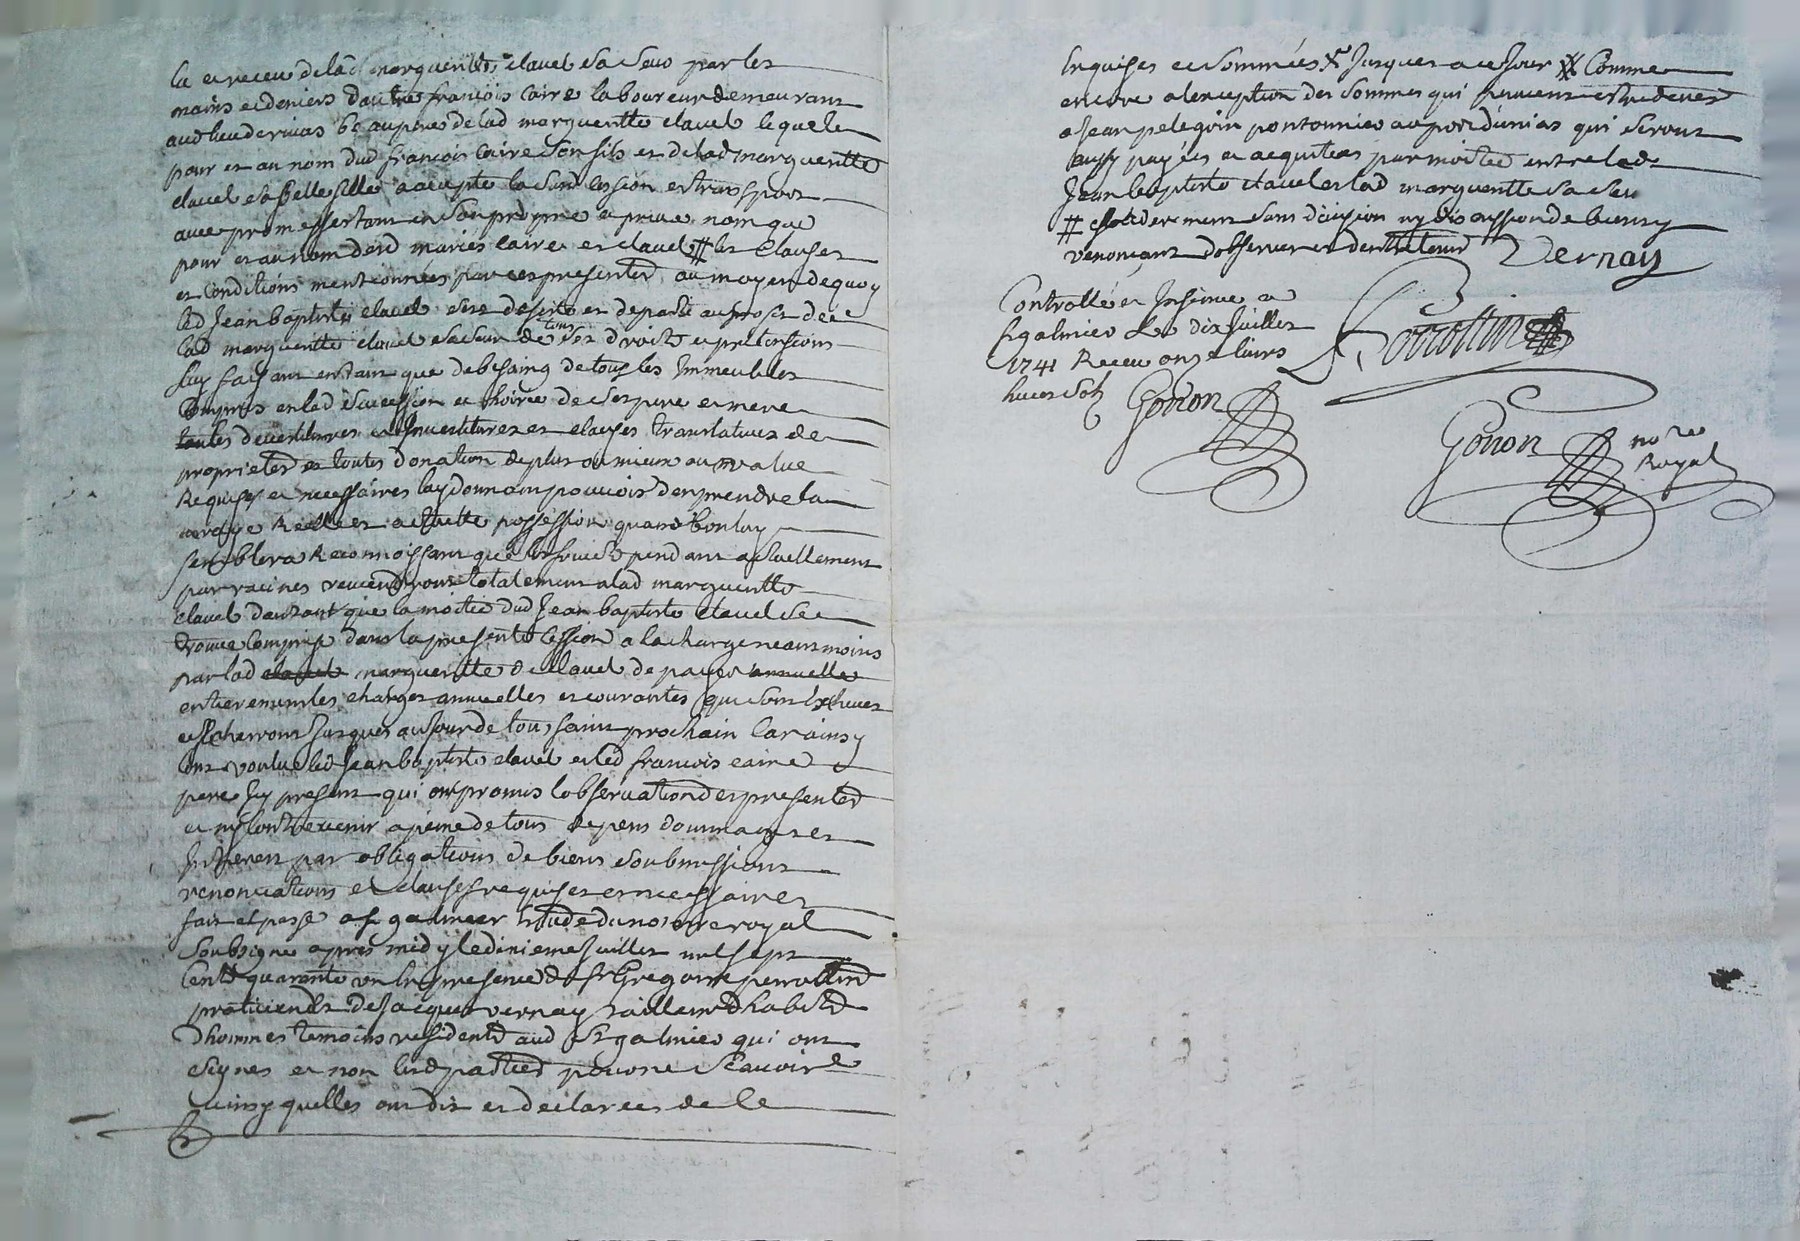 eu et receu de lad margueritte clavel sa seur par les
mains et deniers dautre françois Caire laboureur demeurant
aud lieu de rivas beaupere de lad margueritte clavel lequel
pour et au nom dud françois Caire son fils et de lad margueritte
clavel sa belle fille a accepté la susd cession et transport
avec promesse tant en son propre et privé nom que
pour et au nom desd mariés Caire et clavel # les clauses
et conditions mentionnées par ces presentes au moyen de quoy
led Jean baptiste clavel sest desisté et departi au profit de
lad margueritte clavel sa seur de tous ses droits et pretentions
luy faisant entant que de besoing de tous les Immeubles
Compris en lad succession et hoirie de ses pere et mere
toutes devestitures et Investitures et clauses translatives de
proprieté et toutes donation de plus ou mieux value
Requises et necessaires luy donnant pouvoir den prendre la
vraye Reelle et actuelle possession quand bon luy
semblera Reconnoissant que les fruits pendant actuellement
par racines reviendront totalement a lad margueritte
clavel dautant que la moitié dud Jean baptiste clavel se
trouve Comprise dans la presente Cession a la charge neanmoins
par lad margueritte clavel de payer
entierement les charges annuelles et courantes qui sont Escheues
et Escherront Jusques au Jour de toussaint prochain Car ainsy
lont voulu led Jean baptiste clavel et led francois caire
pere Icy present qui ont promis lobservation des presentes
et ny Contrevenir a peine de tous depens dommages et
Interets par obligations de biens soubmissions
renonciations et clauses requises et necessaires
fait et passé a st galmier Etude du notaire royal
soubsigné apres midy le dixieme Juillet mil sept
Cents quarante un En presence de sr Gregoire perrottin
praticien et de Jacques vernay tailleur dhabits
dhommes temoins residents aud St galmier qui ont
signés et non lesd parties pour ne scavoir
ainsy quelles ont dit et declarées de ce
Enquises et sommées Jusques a ce Jour Comme
encore a lexception des sommes qui peuvent estre deues
a Jean pelegrin pontonnier au port dunias qui seront
aussy payées et acquittées par moitié entre led
Jean baptiste clavel et lad margueritte sa seur
# solidairement sans division ny discussion de biens y
renonçant dobserver et dentretenir Vernay
Controllé et Insinué a
st galmier le dix Juillet
1741 Receu onze livres
huict sols
Perrottin
Gonon
Gonon
nore
Royal